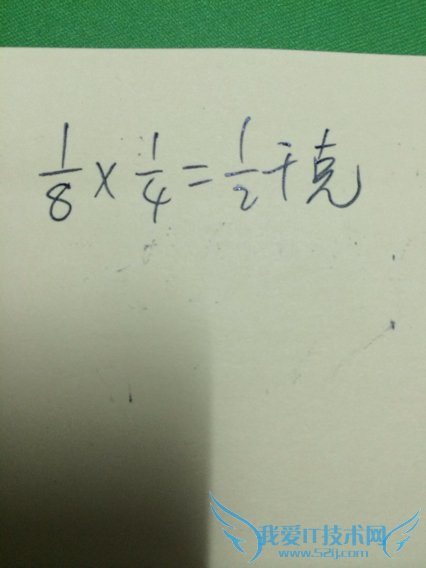 1/8 × 1/4 = 1/2 千克
我爱IT技术网
www.52ij.com